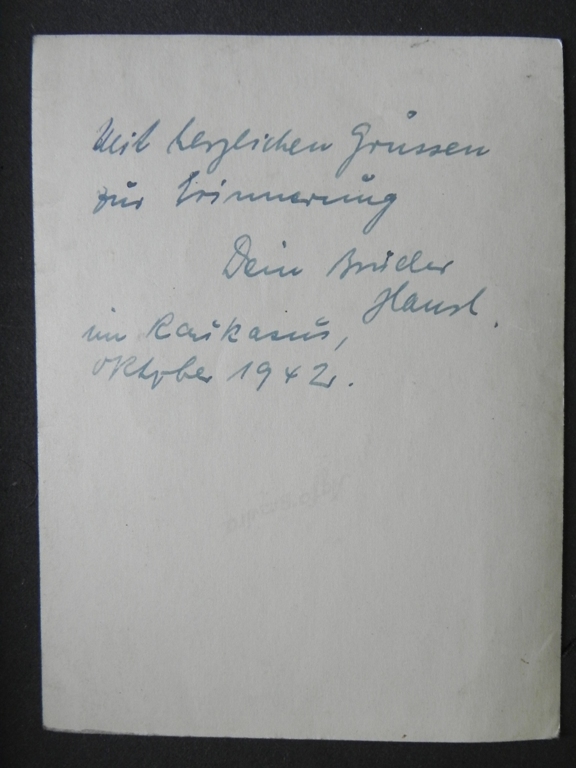 Mit herzlichen Grüssen
zur Erinnerung
Dein Bruder
Hansl.
im Kaukasus,
Oktober 1942.